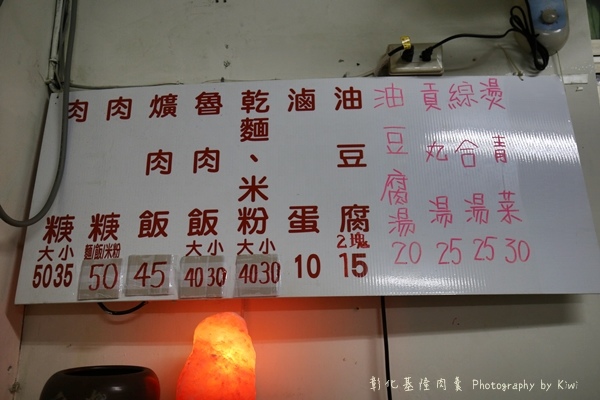 肉糖 大小 50 35
肉糖 麵/飯/米粉 50
爌肉飯 45
魯肉飯 大小 40 30
乾麵、米粉 大小 40 30
滷蛋 10
油豆腐 2塊 15
油豆腐湯 20
貢丸湯 25
綜合湯 25
燙青菜 30
彰化基隆肉羹 Photography by Kiwi